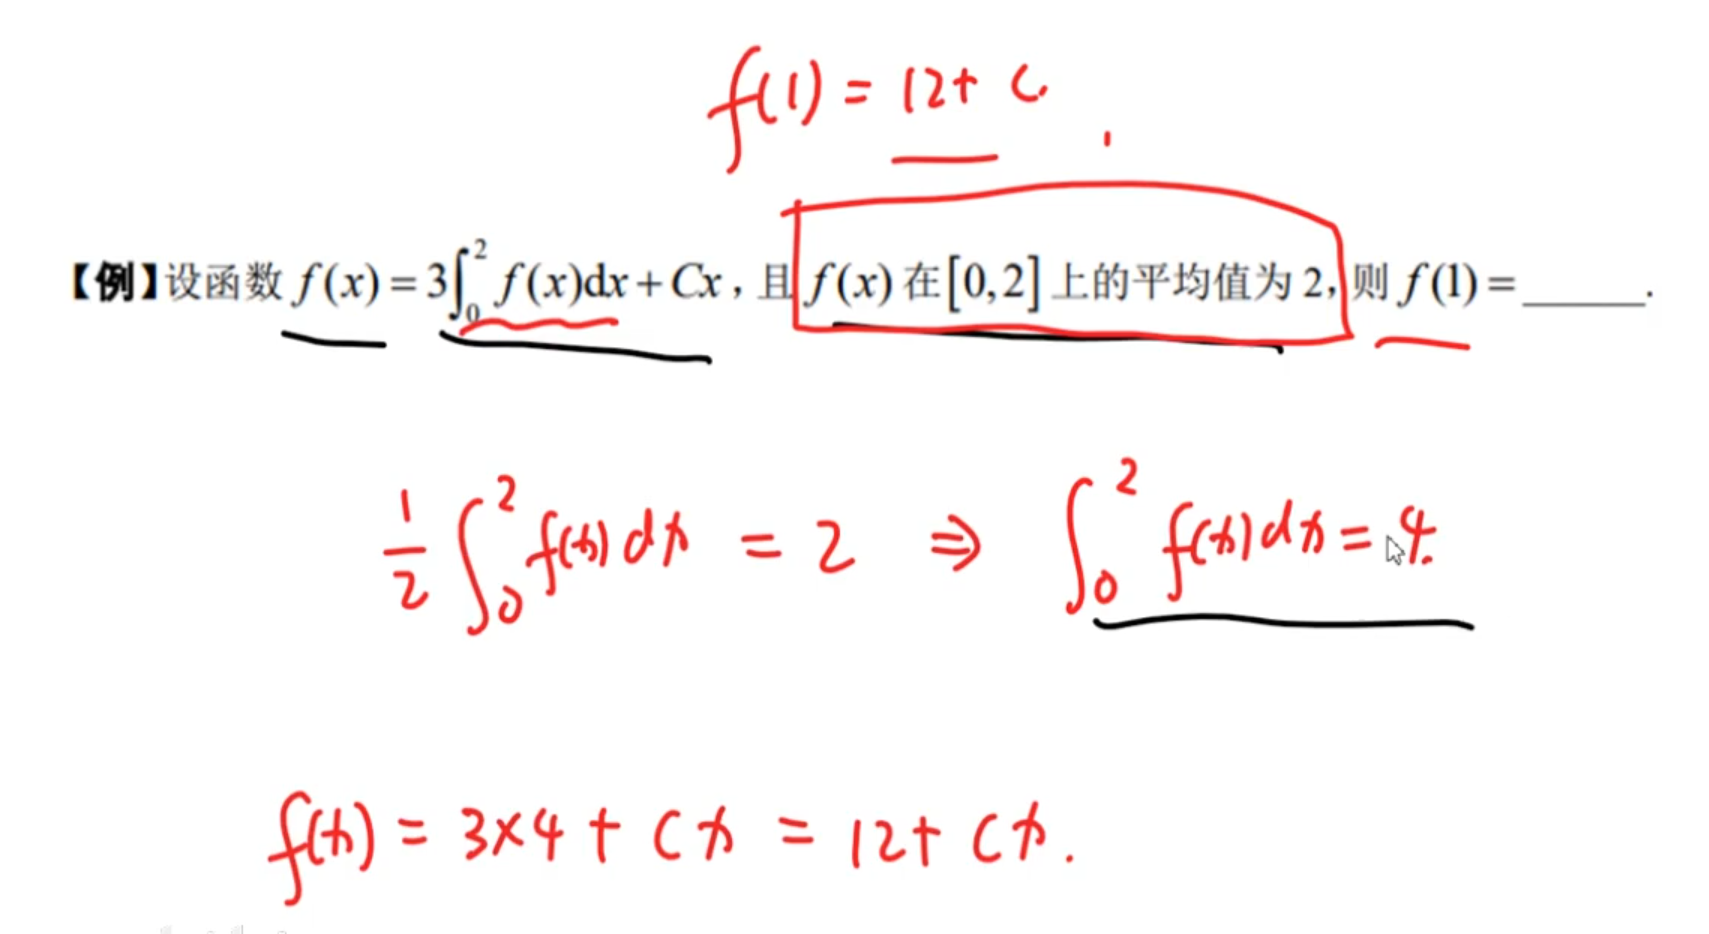 f(1) = 12 + C.
【例】设函数 f(x) = 3∫₀² f(x)dx + Cx，且 f(x) 在[0,2]上的平均值为 2，则 f(1) = ______.
1/2 ∫₀² f(x)dx = 2 ⇒ ∫₀² f(x)dx = 4.
f(x) = 3×4 + Cx = 12 + Cx.